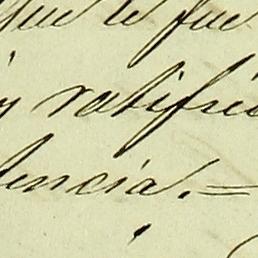 que le fue
y ratific
dencia. =